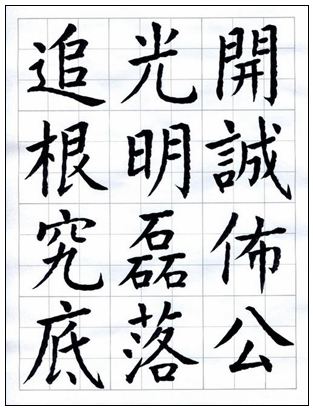 開誠佈公
光明磊落
追根究底